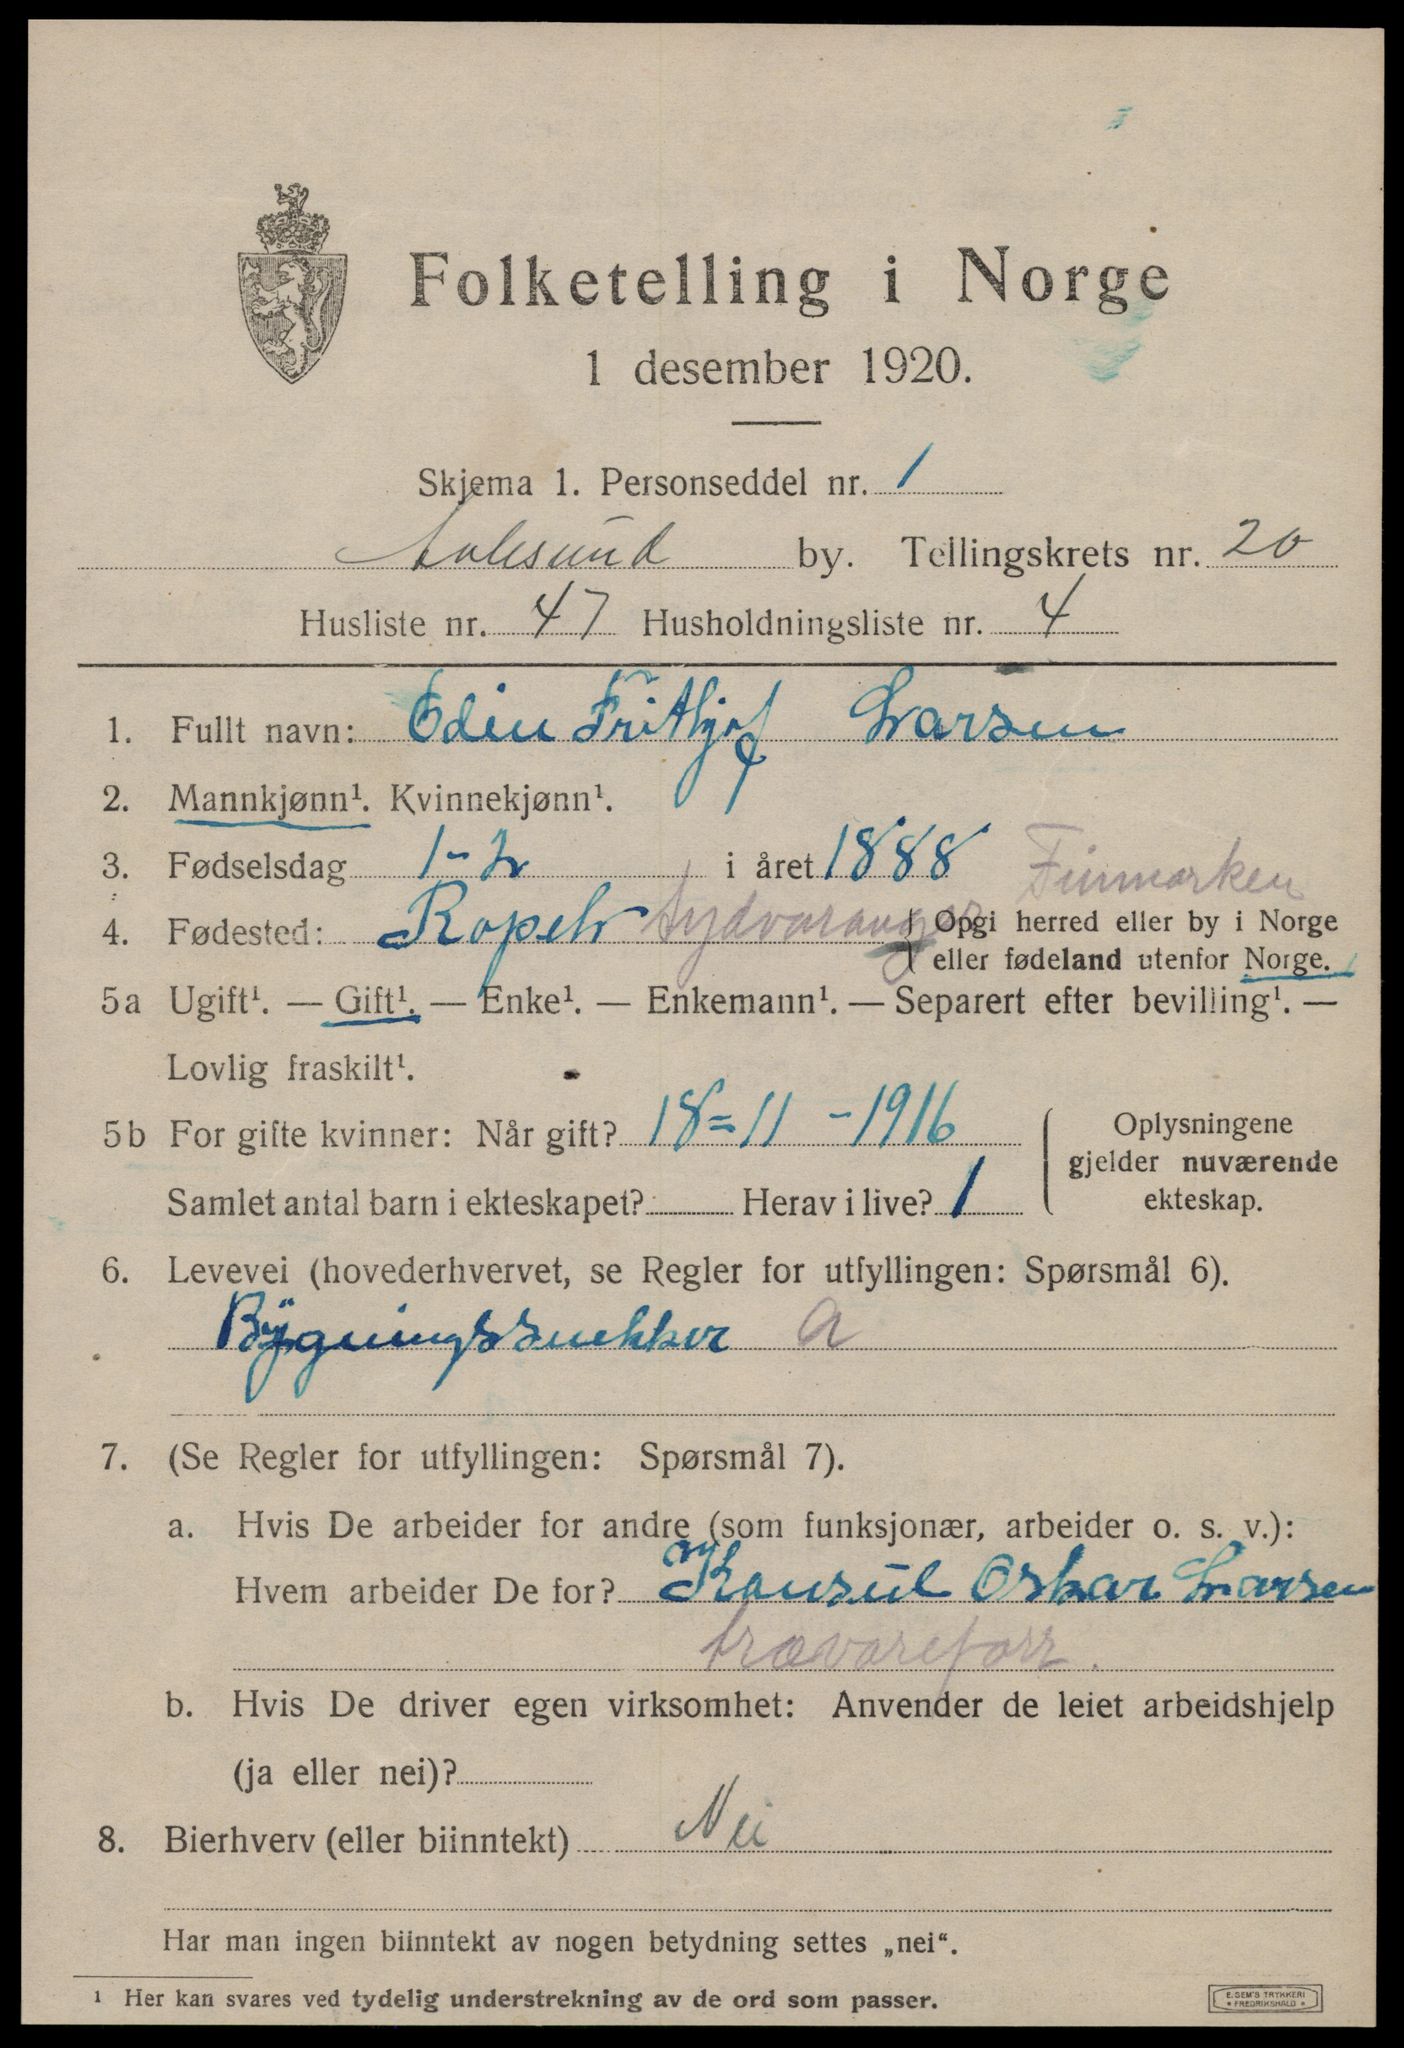 Folketelling i Norge
1 desember 1920.
Skjema 1. Personseddel nr. 1
Aalesund by. Tellingskrets nr. 20
Husliste nr. 47 Husholdningsliste nr. 4
1. Fullt navn: Odin Frithjof Larsen
2. Mannkjønn¹. Kvinnekjønn¹.
3. Fødselsdag 1-2 i året 1888 Finmarken
4. Fødested: Sydvaranger Opgi herred eller by i Norge
eller fødeland utenfor Norge.
5a Ugift¹. — Gift¹. — Enke¹. — Enkemann¹. — Separert efter bevilling¹. —
Lovlig fraskilt¹.
5b For gifte kvinner: Når gift? 18=11-1916 Oplysningene
gjelder nuværende
Samlet antal barn i ekteskapet? Herav i live? 1 ekteskap.
6. Levevei (hovederhvervet, se Regler for utfyllingen: Spørsmål 6).
Bygningssnekker a
7. (Se Regler for utfyllingen: Spørsmål 7).
a. Hvis De arbeider for andre (som funksjonær, arbeider o. s. v.):
Hvem arbeider De for? Konsül Oskar Larsen
trævareforr.
b. Hvis De driver egen virksomhet: Anvender de leiet arbeidshjelp
(ja eller nei)?
8. Bierhverv (eller biinntekt) Nei
Har man ingen biinntekt av nogen betydning settes „nei“.
¹ Her kan svares ved tydelig understrekning av de ord som passer.
E. SEM'S TRYKKERI
* FREDRIKSHALD *